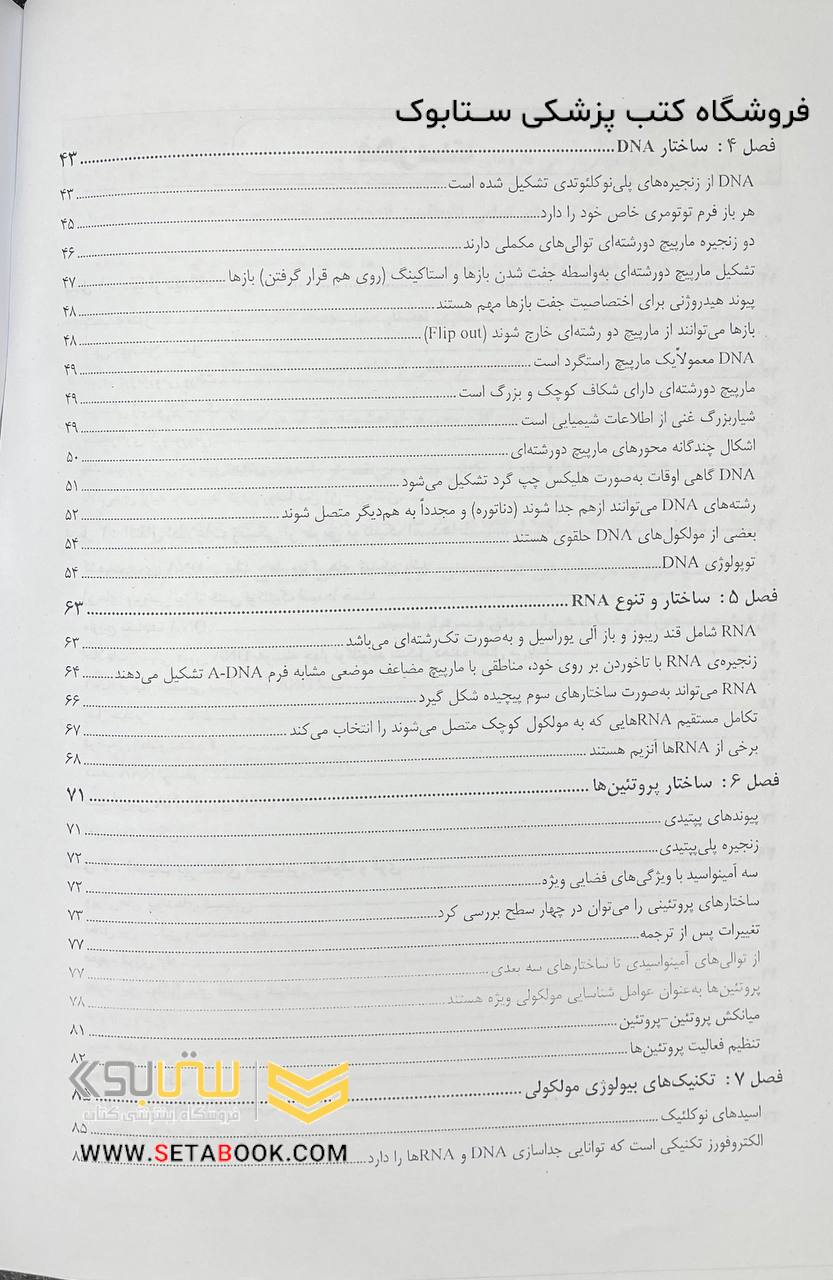 فروشگاه کتب پزشکی ستابوک
فصل ۴: ساختار DNA ۴۳
DNA از زنجیره‌های پلی‌نوکلئوتدی تشکیل شده است ۴۳
هر باز فرم توتومری خاص خود را دارد ۴۵
دو زنجیره مارپیچ دورشته‌ای توالی‌های مکملی دارند ۴۶
تشکیل مارپیچ دورشته‌ای به‌واسطه جفت شدن بازها و استاکینگ (روی هم قرار گرفتن) بازها ۴۷
پیوند هیدروژنی برای اختصاصیت جفت بازها مهم هستند ۴۸
بازها می‌توانند از مارپیچ دو رشته‌ای خارج شوند (Flip out) ۴۸
DNA معمولاًیک مارپیچ راستگرد است ۴۹
مارپیچ دورشته‌ای دارای شکاف کوچک و بزرگ است ۴۹
شیاربزرگ غنی از اطلاعات شیمیایی است ۴۹
اشکال چندگانه محورهای مارپیچ دورشته‌ای ۵۰
DNA گاهی اوقات به‌صورت هلیکس چپ گرد تشکیل می‌شود ۵۱
رشته‌های DNA می‌توانند ازهم جدا شوند (دناتوره) و مجدداً به هم‌دیگر متصل شوند ۵۲
بعضی از مولکول‌های DNA حلقوی هستند ۵۴
توپولوژی DNA ۵۴
فصل ۵: ساختار و تنوع RNA ۶۳
RNA شامل قند ریبوز و باز آلی یوراسیل و به‌صورت تک‌رشته‌ای می‌باشد ۶۳
زنجیره‌ی RNA با تاخوردن بر روی خود، مناطقی با مارپیچ مضاعف موضعی مشابه فرم A-DNA تشکیل می‌دهند ۶۴
RNA می‌تواند به‌صورت ساختارهای سوم پیچیده شکل گیرد ۶۶
تکامل مستقیم RNAهایی که به مولکول کوچک متصل می‌شوند را انتخاب می‌کند ۶۷
برخی از RNAها آنزیم هستند ۶۸
فصل ۶: ساختار پروتئین‌ها ۷۱
پیوندهای پپتیدی ۷۱
زنجیره پلی‌پپتیدی ۷۲
سه آمینواسید با ویژگی‌های فضایی ویژه ۷۲
ساختارهای پروتئینی را می‌توان در چهار سطح بررسی کرد ۷۳
تغییرات پس از ترجمه ۷۷
از توالی‌های آمینواسیدی تا ساختارهای سه بعدی ۷۷
پروتئین‌ها به‌عنوان عوامل شناسایی مولکولی ویژه هستند ۷۸
میانکش پروتئین-پروتئین ۸۱
تنظیم فعالیت پروتئین‌ها ۸۲
فصل ۷: تکنیک‌های بیولوژی مولکولی ۸۵
اسیدهای نوکلئیک ۸۵
الکتروفورز تکنیکی است که توانایی جداسازی DNA و RNAها را دارد
ستابوک
فروشگاه اینترنتی کتاب
WWW.SETABOOK.COM